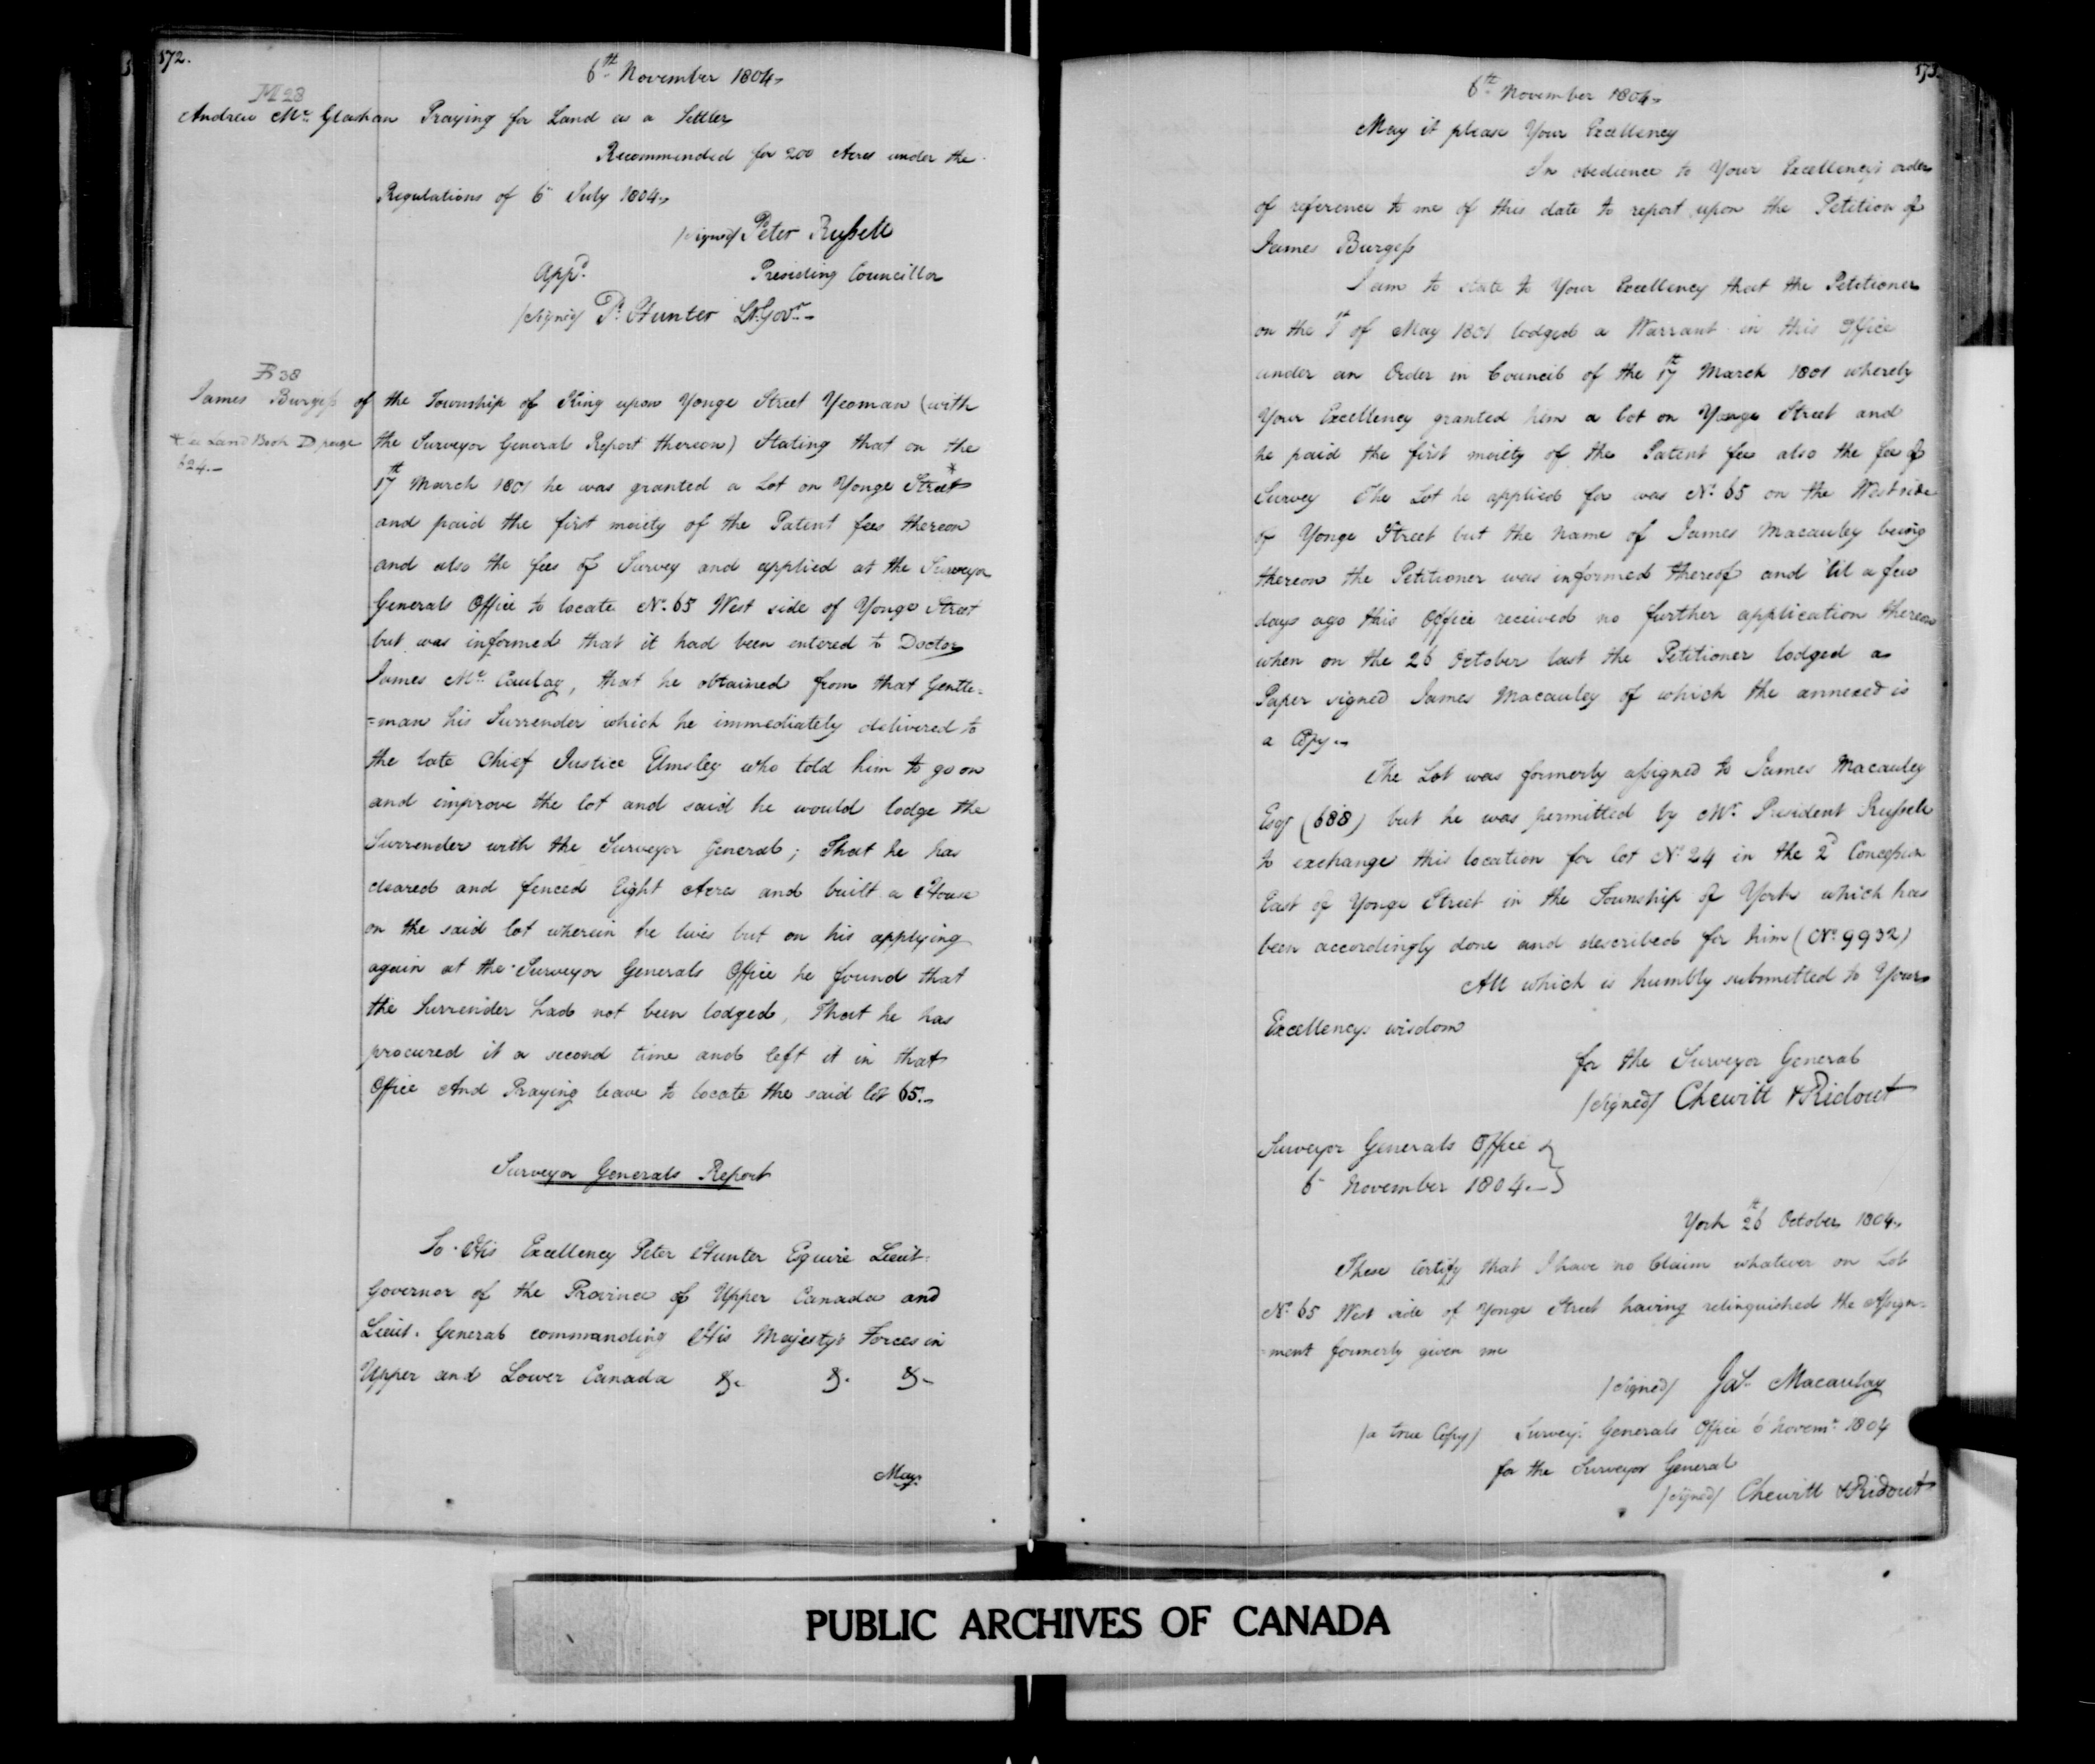 172.
6th November 1804.
M 23
Andrew Mc Glashan Praying for Land as a Settler
Recommended for 200 Acres under the
Regulations of 6th July 1804.
/signed/ Peter Russell
Appd. Presiding Councillor
/signed/ P. Hunter Lt. Govr.
B 38
James Burgess of the Township of King upon Yonge Street Yeoman (with
* See Land Book D page
624.
the Surveyor General Report thereon) Stating that on the
17th March 1801 he was granted a Lot on Yonge Street*
and paid the first moiety of the Patent fees thereon
and also the fees of Survey and applied at the Surveyor
Generals Office to locate No. 65 West side of Yonge Street
but was informed that it had been entered to Doctor
James Mc Caulay, that he obtained from that Gentle=
=man his Surrender which he immediately delivered to
the late Chief Justice Elmsley who told him to go on
and improve the lot and said he would lodge the
Surrender with the Surveyor General; That he has
cleared and fenced Eight Acres and built a House
on the said lot wherein he lives but on his applying
again at the Surveyor Generals Office he found that
the Surrender had not been lodged, That he has
procured it a second time and left it in that
Office And Praying leave to locate the said lot 65.
Surveyor Generals Report
To His Excellency Peter Hunter Esquire Lieut.
Governor of the Province of Upper Canada and
Lieut. General commanding His Majesty's Forces in
Upper and Lower Canada &. &. &.
May
173.
6th November 1804.
May it please Your Excellency
In obedience to Your Excellency's order
of reference to me of this date to report upon the Petition of
James Burgess
I am to state to Your Excellency that the Petitioner
on the 1st of May 1801 lodged a Warrant in this Office
under an Order in Council of the 17th March 1801 whereby
Your Excellency granted him a lot on Yonge Street and
he paid the first moiety of the Patent fee also the fee of
Survey The Lot he applied for was No. 65 on the West side
of Yonge Street but the name of James Macauley being
thereon the Petitioner was informed thereof and 'til a few
days ago this Office received no further application thereon
when on the 26 October last the Petitioner lodged a
Paper signed James Macauley of which the annexed is
a Copy.
The Lot was formerly assigned to James Macauley
Esqr (688) but he was permitted by Mr. President Russell
to exchange this location for lot No. 24 in the 2d Concession
East of Yonge Street in the Township of York which has
been accordingly done and described for him (No. 9932)
All which is humbly submitted to Your
Excellencys wisdom
for the Surveyor General
/signed/ Chewitt & Ridout
Surveyor Generals Office }
6th November 1804. }
York 26th October 1804.
These Certify that I have no Claim whatever on Lot
No. 65 West side of Yonge Street having relinquished the Assign=
=ment formerly given me
/signed/ Jas. Macaulay
/a true Copy/ Surveyr. Generals Office 6 Novemr. 1804
for the Surveyor General
/signed/ Chewitt & Ridout
PUBLIC ARCHIVES OF CANADA